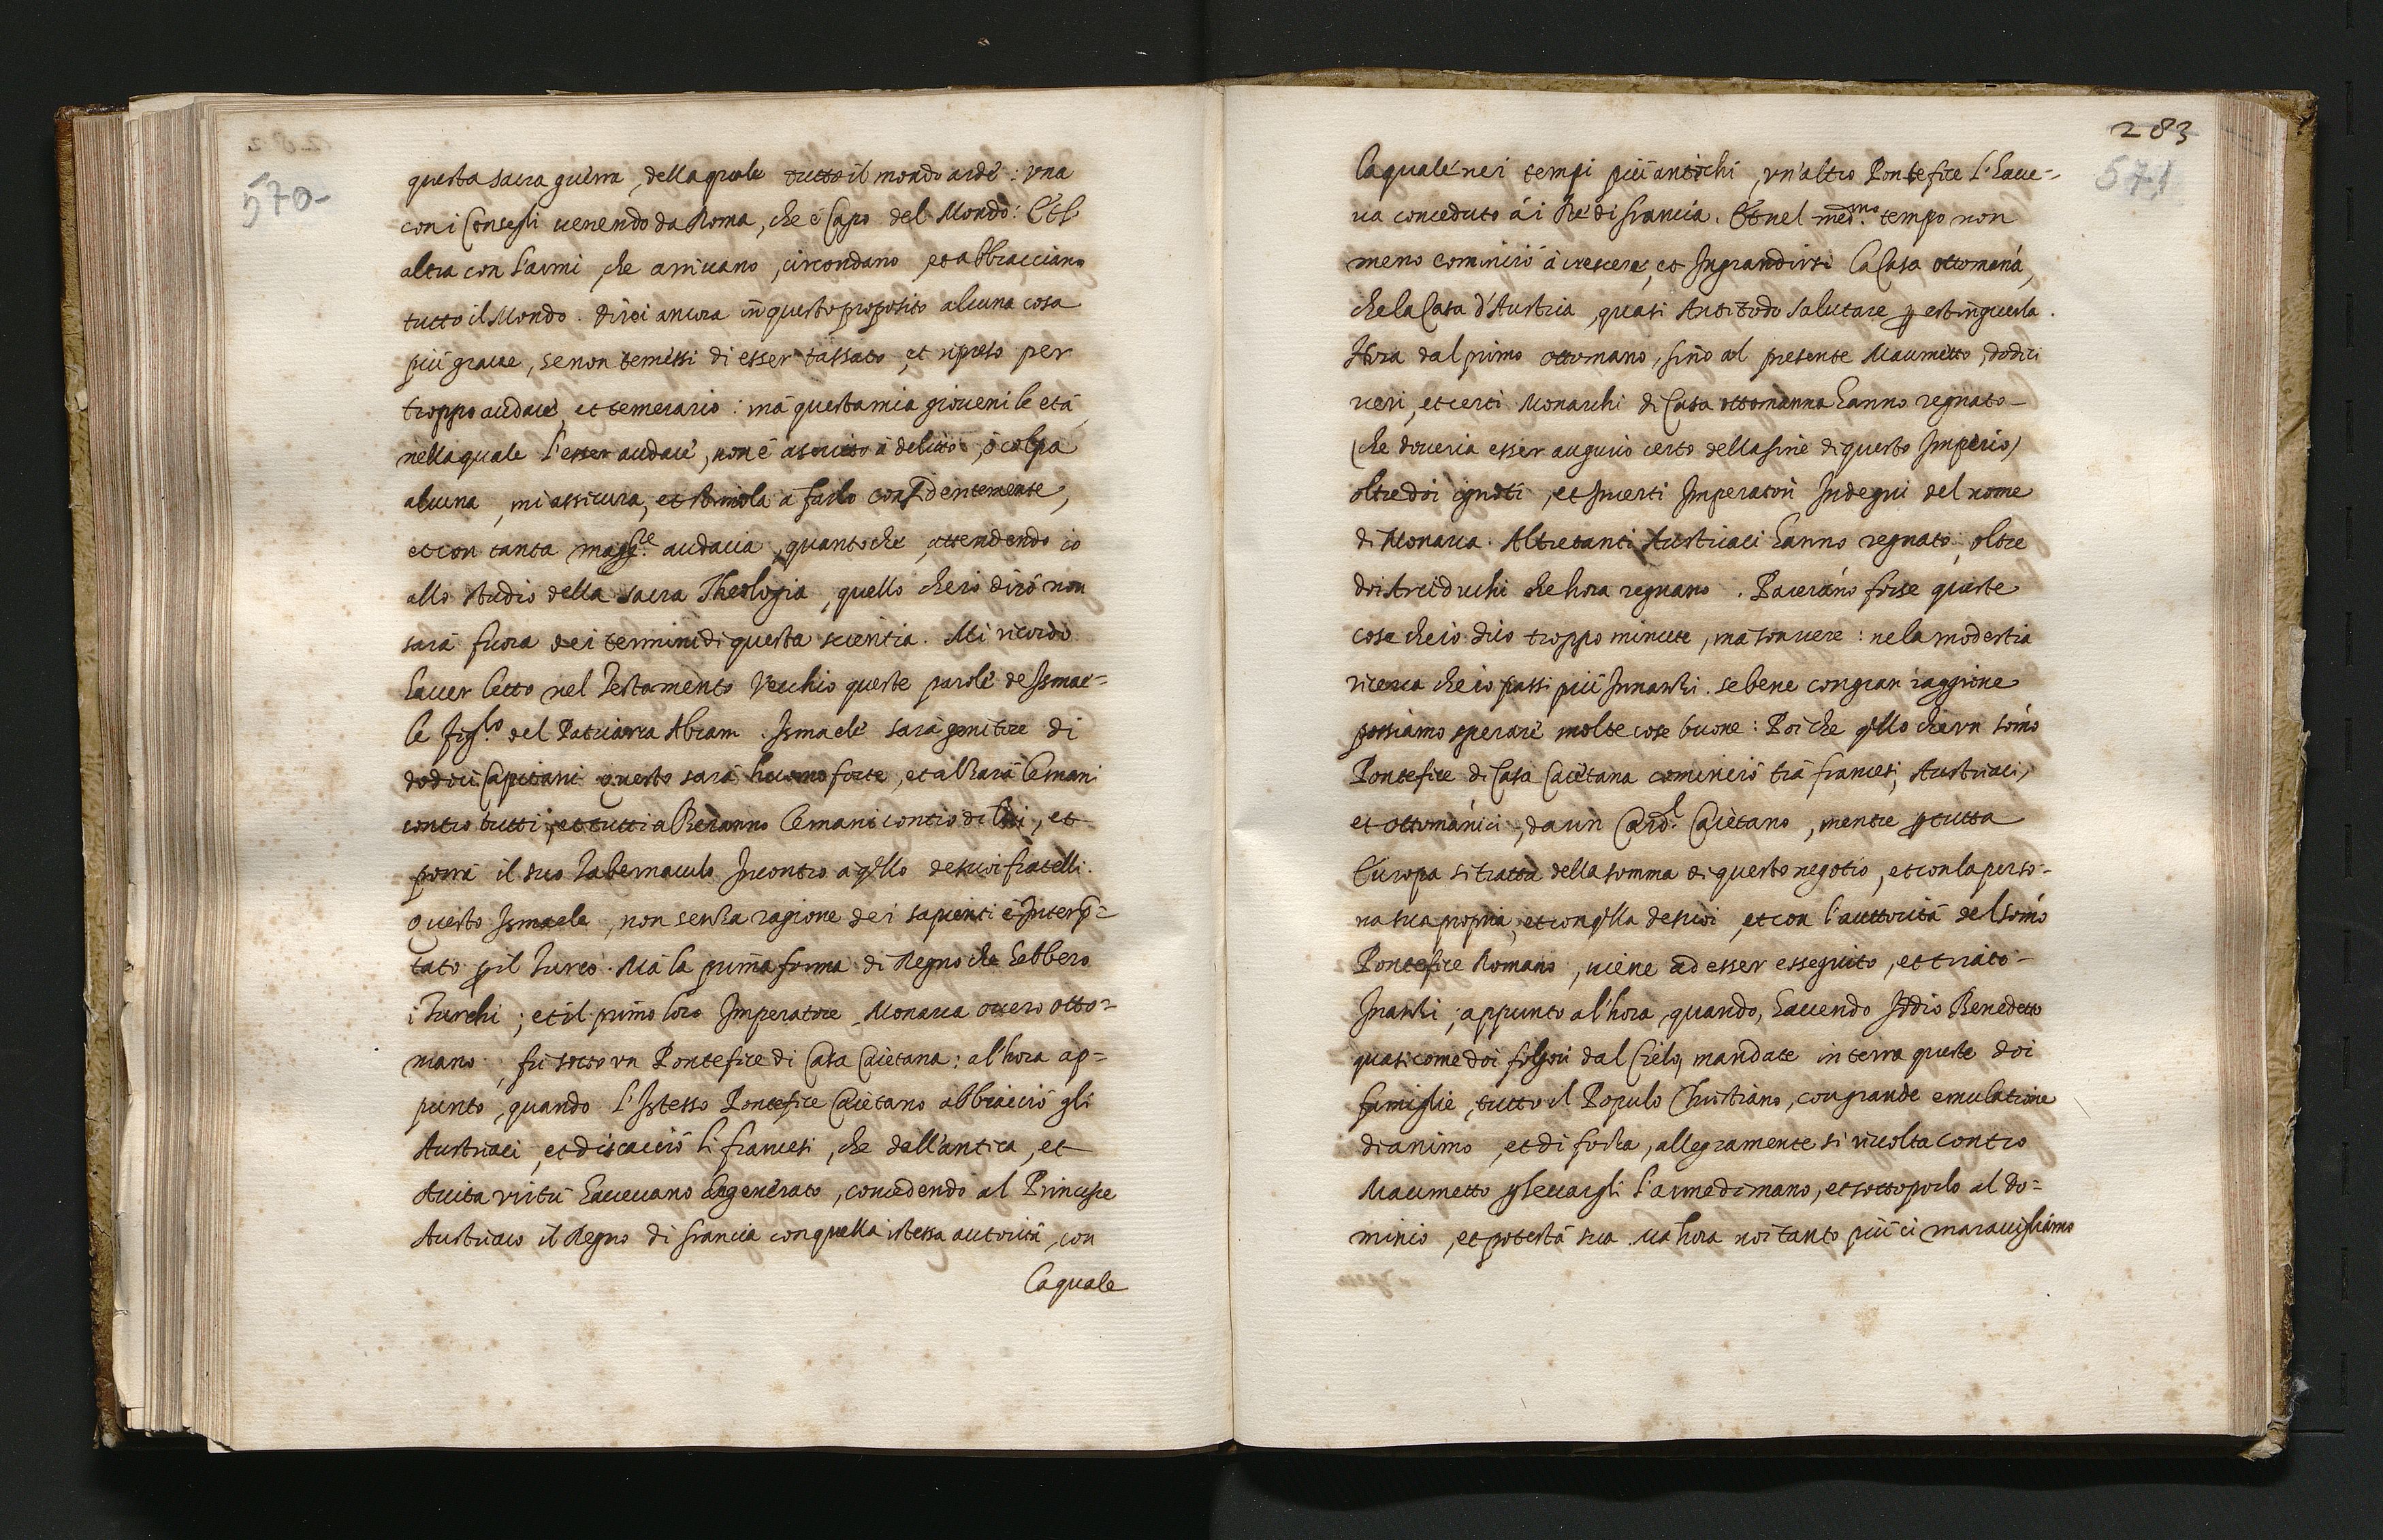 570-
questa sacra guerra, della quale tutto il mondo arde: vna
con i Consegli uenendo da Roma, che è Capo del Mondo: Et l'
altra con l'armi, che arriuano, circondano, et abbracciano
tutto il Mondo. Direi ancora in questo proposito alcuna cosa
più graue, se non temessi di esser tassato, et ripreso per
troppo audace, et temerario: mà questa mia giouenile età,
nella quale l'esser audace, non è ascritto à delitto, ò colpa
alcuna, mi assicura, et stimola à farlo confidentemente,
et con tanta magg.re audacia, quanto che, attendendo io
allo studio della sacra Theologia, quello che io dirò non
sarà fuora dei termini di questa scientia. Mi ricordo
hauer letto nel Testamento Vecchio queste parole de Ismae=
le fig.lo del Patriarca Abram. Ismaele sarà genitore di
dodici Capitani questo sarà huomo forte, et alzarà le mani
contro tutti, et tutti alzeranno le mani contro di lui, et
porrà il suo Tabernaculo Incontro a q̃llo de suoi fratelli.
Questo Ismaele, non senza ragione dei sapienti è Interp̃=
tato p̱ il Turco. Mà la prima forma di Regno che hebbero
i Turchi; et il primo loro Imperatore, Monarca ouero Otto=
mano, fu sotto vn Pontefice di Casa Caietana: al'hora ap=
punto, quando l'Istesso Pontefice Caietano abbracciò gli
Austriaci, et discacciò li francesi, che dall'antica, et
Auita virtù haueuano degenerato, concedendo al Principe
Austriaco il Regno di francia con quella istessa autorità, con
la quale
283
571
la quale nei tempi più antichi, vn'altro Pontefice l'haue=
ua conceduto ài Rè di francia. Et nel med.mo tempo non
meno cominciò à crescere, et Ingrandirsi la Casa ottomana,
che la Casa d'Austria, quasi Antitodo salutare p̱ estinguerla.
Hora dal primo ottomano, sino al presente Maumetto, dodici
ueri, et certi Monarchi di Casa ottomanna hanno regnato
(che doueria esser augurio certo della fine di questo Imperio)
oltre doi ignoti, et Incerti Imperatori Indegni del nome
di Monarca. Altretanti Austriaci hanno regnato, oltre
doi Arciduchi che hora regnano. Pareranno forse queste
cose che io dico troppo minute, ma son uere: ne la modestia
ricerca che io passi più Innanzi. se bene con gran raggione
possiamo sperare molte cose buone: Poi che q̃llo che vn som̃o
Pontefice di Casa Caietana cominciò trà francesi, Austriaci,
et ottomanici, da un Card.l Caietano, mentre p̱ tutta
Europa si tratta della somma di questo negotio, et con la perso=
na sua propria, et con q̃lla de suoi, et con l'auttorità del Som̃o
Pontefice Romano, uiene ad esser esseguito, et tirato
Inanzi; appunto al'hora, quando, hauendo Iddio Benedetto
quasi come doi folgori dal Cielo, mandate in terra queste doi
famiglie, tutto il Populo Christiano, con grande emulatione
di animo, et di forza, allegramente si riuolta contro
Maumetto p̱ leuargli l'arme di mano, et sottoporlo al do=
minio, et potestà sua. Ma hora noi tanto più ci marauigliamo